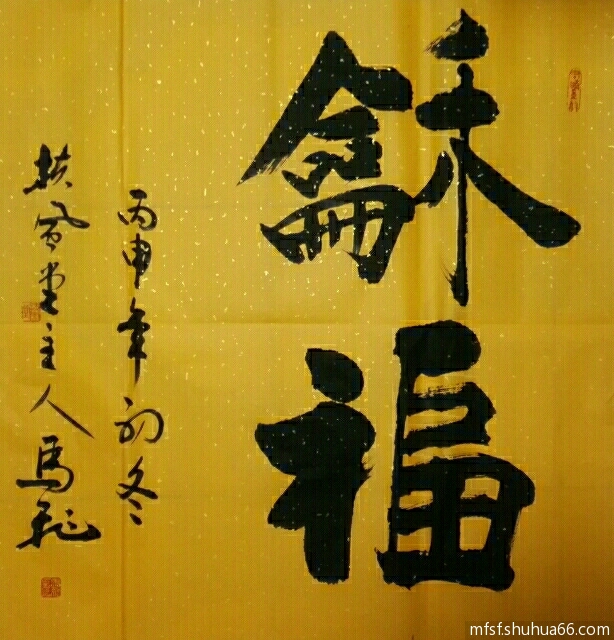 龢福
丙申年初冬
扶風堂主人馬飛
mfsf.shuhua66.com